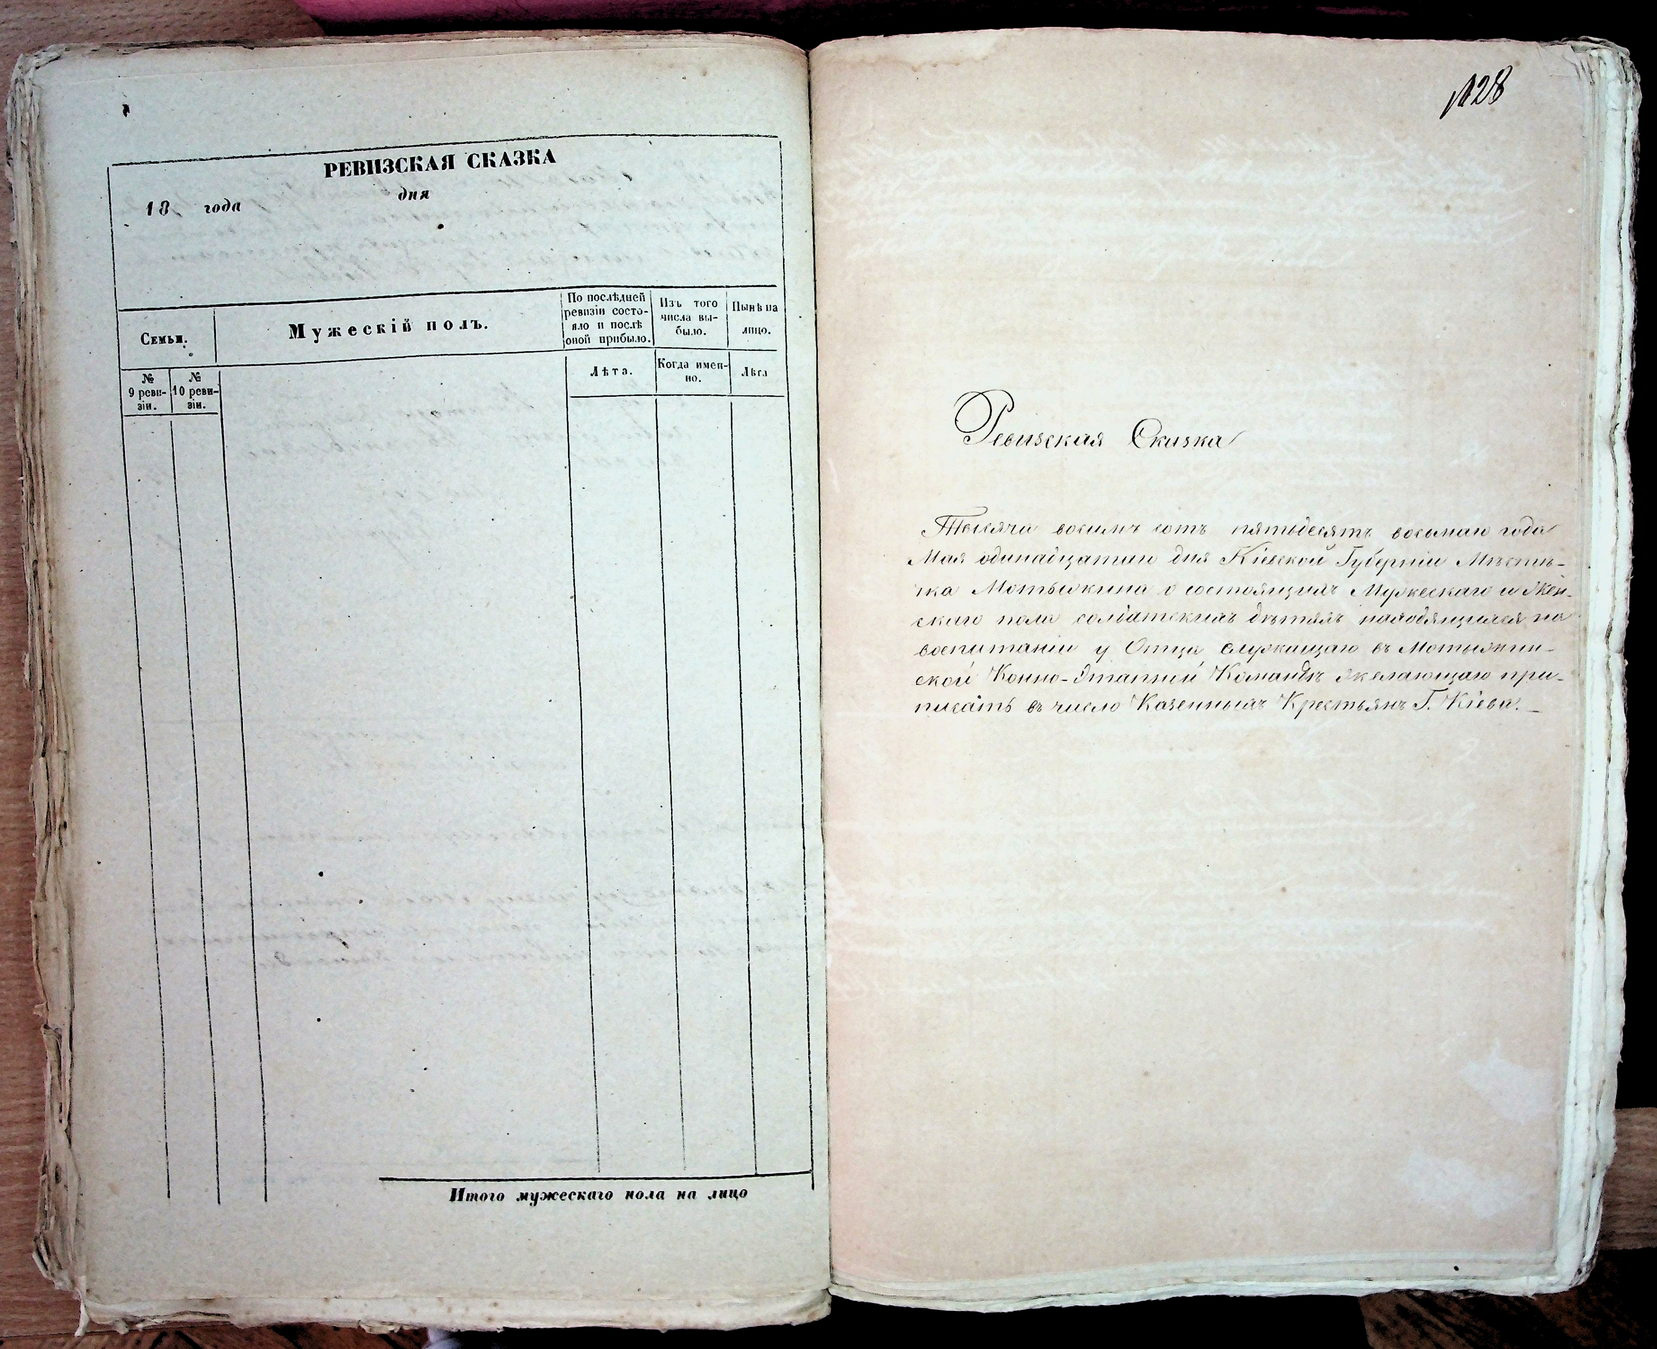 РЕВИЗСКАЯ СКАЗКА
18 года дня
Семьи.
Мужескій полъ.
По послѣдней ревизіи состо-
яло и послѣ
оной прибыло.
Изъ того
числа вы-
было.
Нынѣ на
лицо.
№
9 реви-
зіи.
№
10 реви-
зіи.
Лѣта.
Когда имен-
но.
Лѣта
Итого мужескаго пола на лицо
128
Ревизская Сказка
Тысяча восемь сотъ пятьдесятъ восьмаго года
Мая одинадцатаго дня Кіевской Губерніи Мѣстеч-
ка Мотыжина о состоящихъ Мужескаго и Жен-
скаго пола солдатскихъ дѣтяхъ находящихся на
воспитаніи у Отца служащаго въ Мотыжин-
ской Конно-Этапной Командѣ желающаго при-
писать въ число Казенныхъ Крестьянъ Г. Кіева.